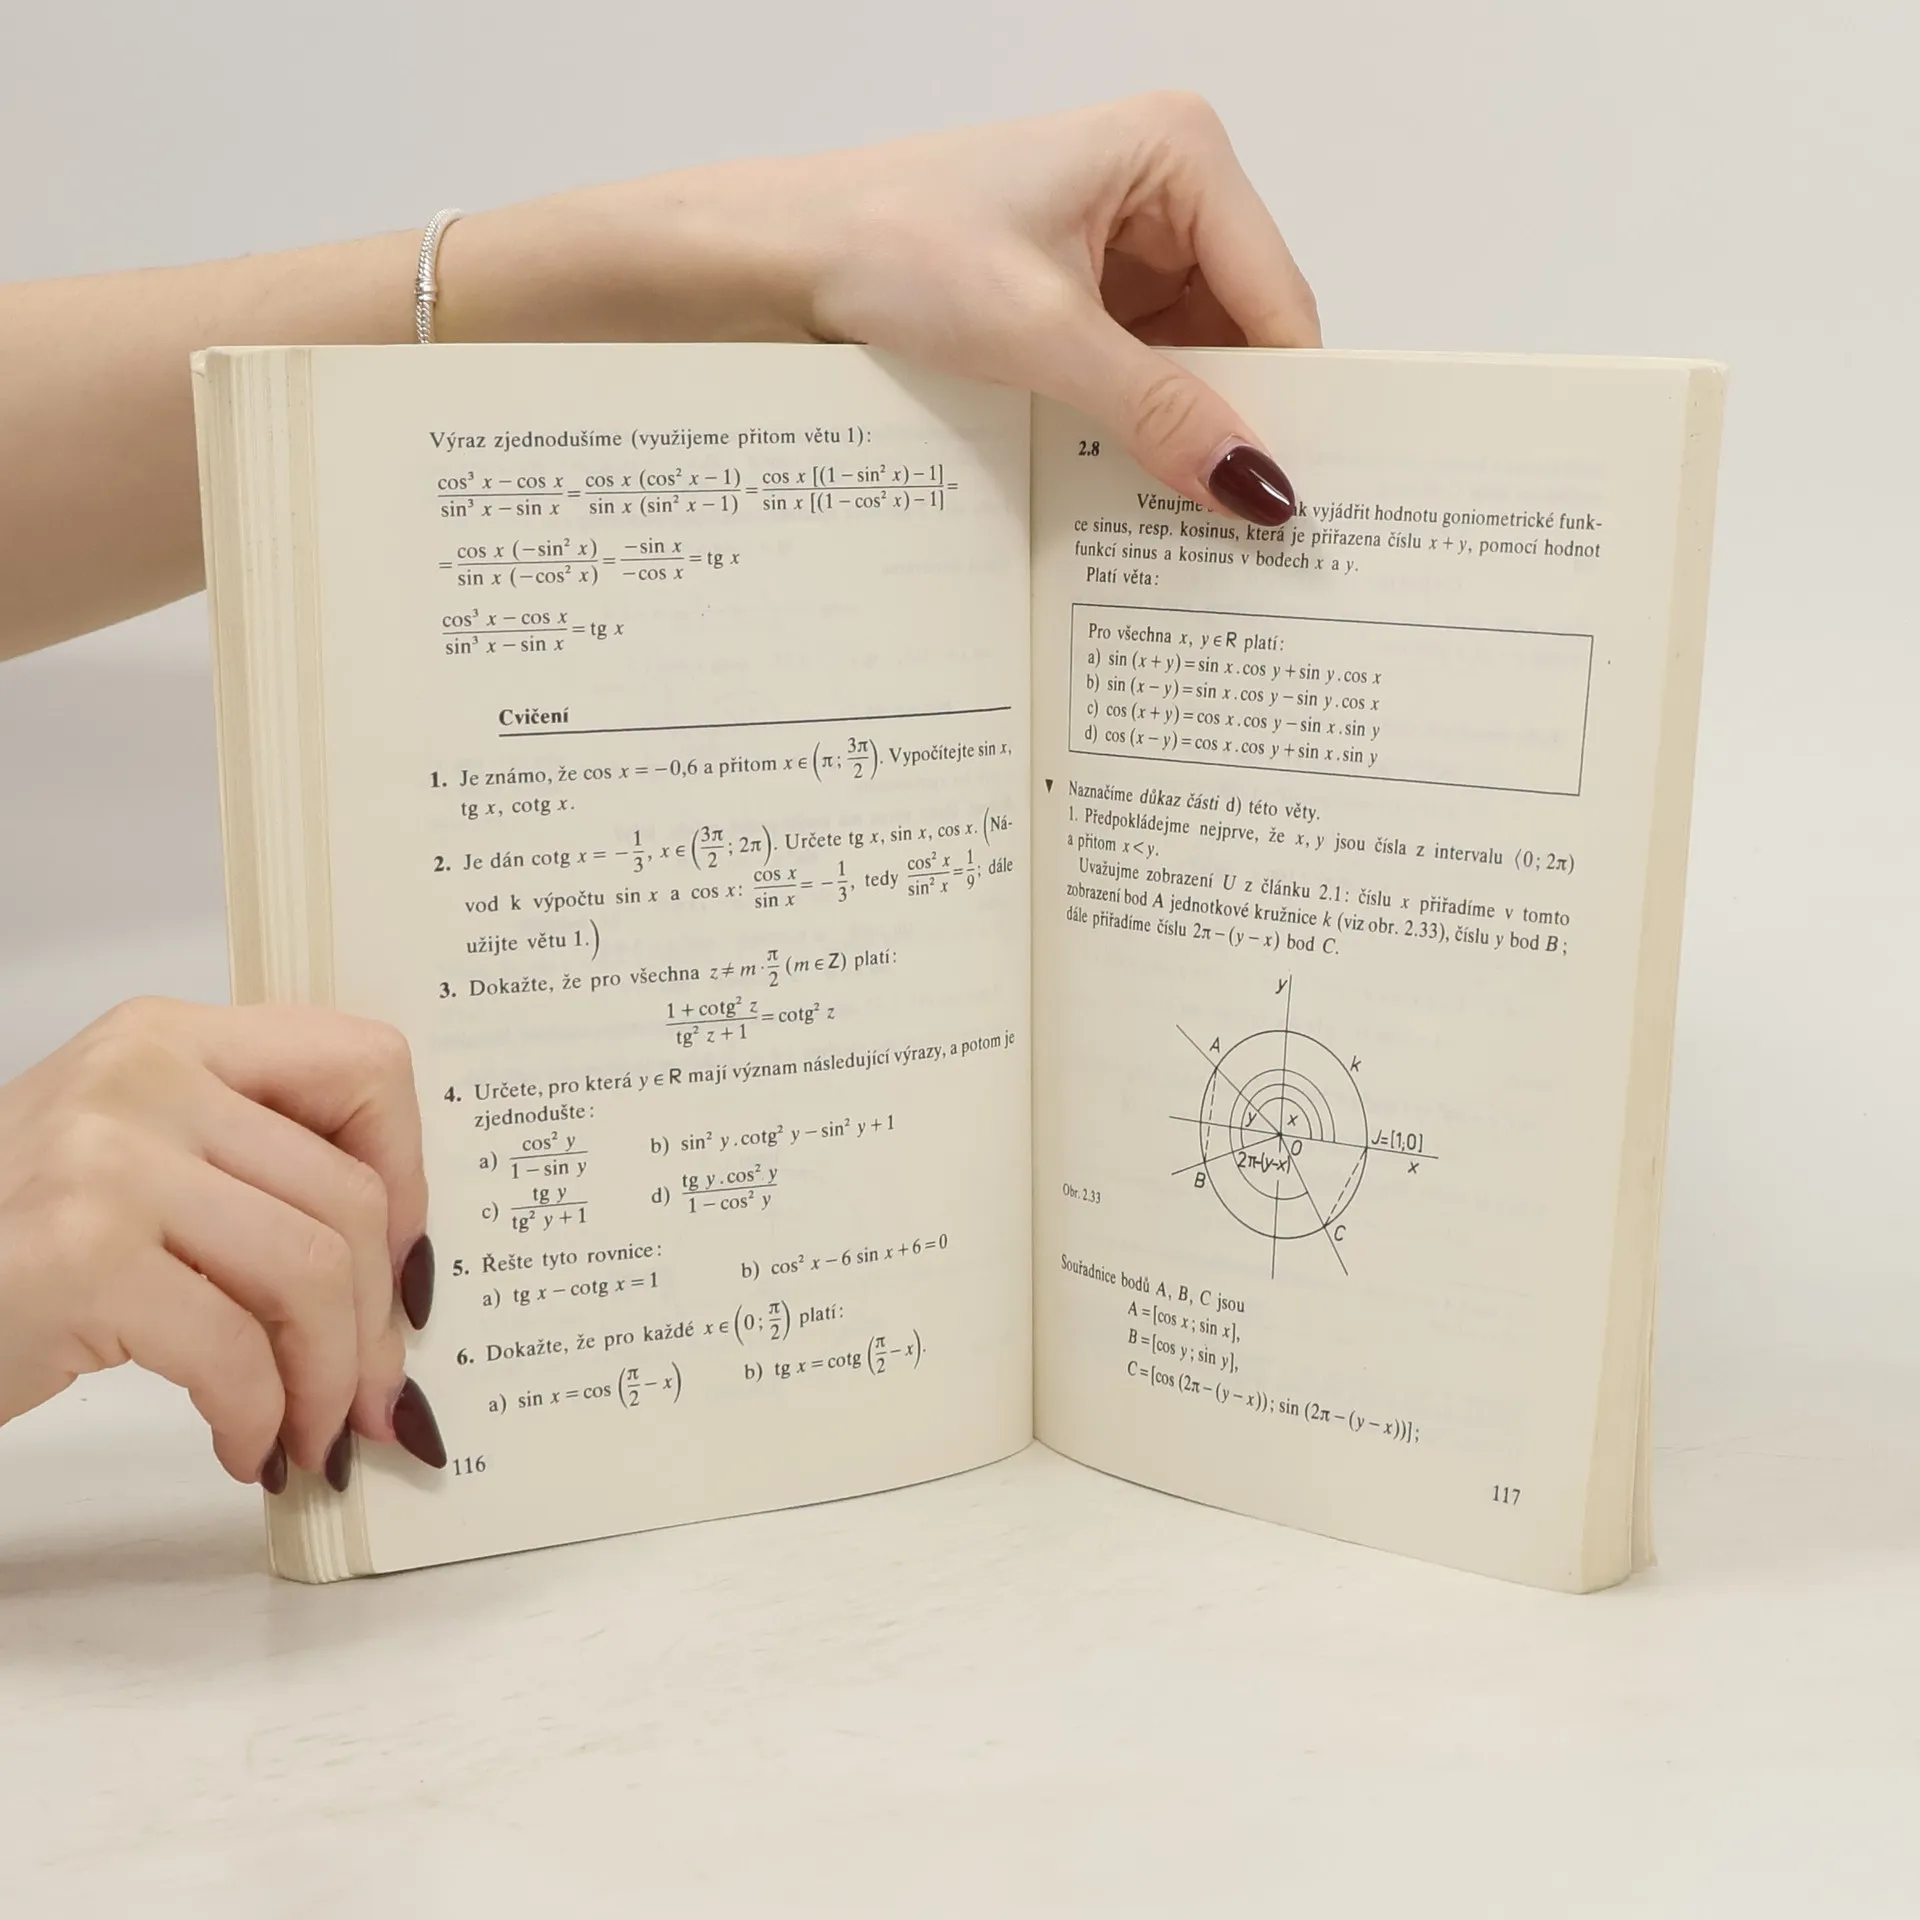 Výraz zjednodušíme (využijeme přitom větu 1):
cos³ x − cos x / sin³ x − sin x = cos x (cos² x − 1) / sin x (sin² x − 1) = cos x [(1 − sin² x) − 1] / sin x [(1 − cos² x) − 1] =
= cos x (−sin² x) / sin x (−cos² x) = −sin x / −cos x = tg x
cos³ x − cos x / sin³ x − sin x = tg x
Cvičení
1. Je známo, že cos x = −0,6 a přitom x ∈ (π; 3π/2). Vypočítejte sin x,
tg x, cotg x.
2. Je dán cotg x = −1/3, x ∈ (3π/2; 2π). Určete tg x, sin x, cos x. (Ná-
vod k výpočtu sin x a cos x: cos x / sin x = −1/3, tedy cos² x / sin² x = 1/9; dále
užijte větu 1.)
3. Dokažte, že pro všechna z ≠ m · π/2 (m ∈ Z) platí:
1 + cotg² z / tg² z + 1 = cotg² z
4. Určete, pro která y ∈ R mají význam následující výrazy, a potom je
zjednodušte:
a) cos² y / 1 − sin y b) sin² y . cotg² y − sin² y + 1
c) tg y / tg² y + 1 d) tg y . cos² y / 1 − cos² y
5. Řešte tyto rovnice:
a) tg x − cotg x = 1 b) cos² x − 6 sin x + 6 = 0
6. Dokažte, že pro každé x ∈ (0; π/2) platí:
a) sin x = cos (π/2 − x) b) tg x = cotg (π/2 − x).
116
2.8
Věnujme ak vyjádřit hodnotu goniometrické funk-
ce sinus, resp. kosinus, která je přiřazena číslu x + y, pomocí hodnot
funkcí sinus a kosinus v bodech x a y.
Platí věta:
Pro všechna x, y ∈ R platí:
a) sin (x + y) = sin x . cos y + sin y . cos x
b) sin (x − y) = sin x . cos y − sin y . cos x
c) cos (x + y) = cos x . cos y − sin x . sin y
d) cos (x − y) = cos x . cos y + sin x . sin y
▼ Naznačíme důkaz části d) této věty.
1. Předpokládejme nejprve, že x, y jsou čísla z intervalu ⟨0; 2π)
a přitom x < y.
Uvažujme zobrazení U z článku 2.1: číslu x přiřadíme v tomto
zobrazení bod A jednotkové kružnice k (viz obr. 2.33), číslu y bod B;
dále přiřadíme číslu 2π − (y − x) bod C.
y
A
k
y x
O
J=[1;0]
x
2π-(y-x)
B
C
Obr. 2.33
Souřadnice bodů A, B, C jsou
A = [cos x; sin x],
B = [cos y; sin y],
C = [cos (2π − (y − x)); sin (2π − (y − x))];
117